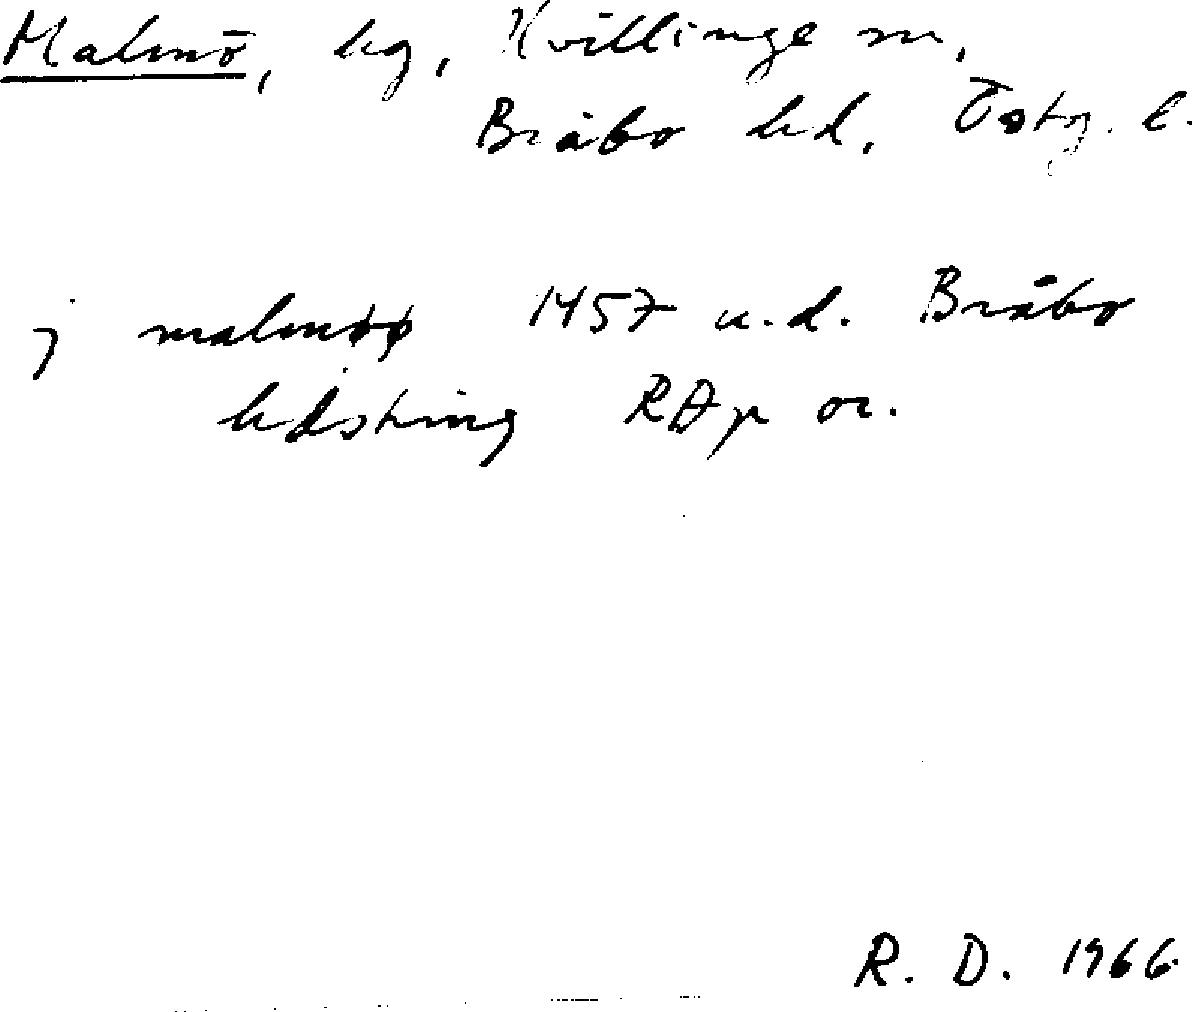 Malmö, hg, Kvillinge sn,
Bråbo hd, Östg. l.
j malmøø 1457 u.d. Bråbo
hdsting RAp or.
R. D. 1966